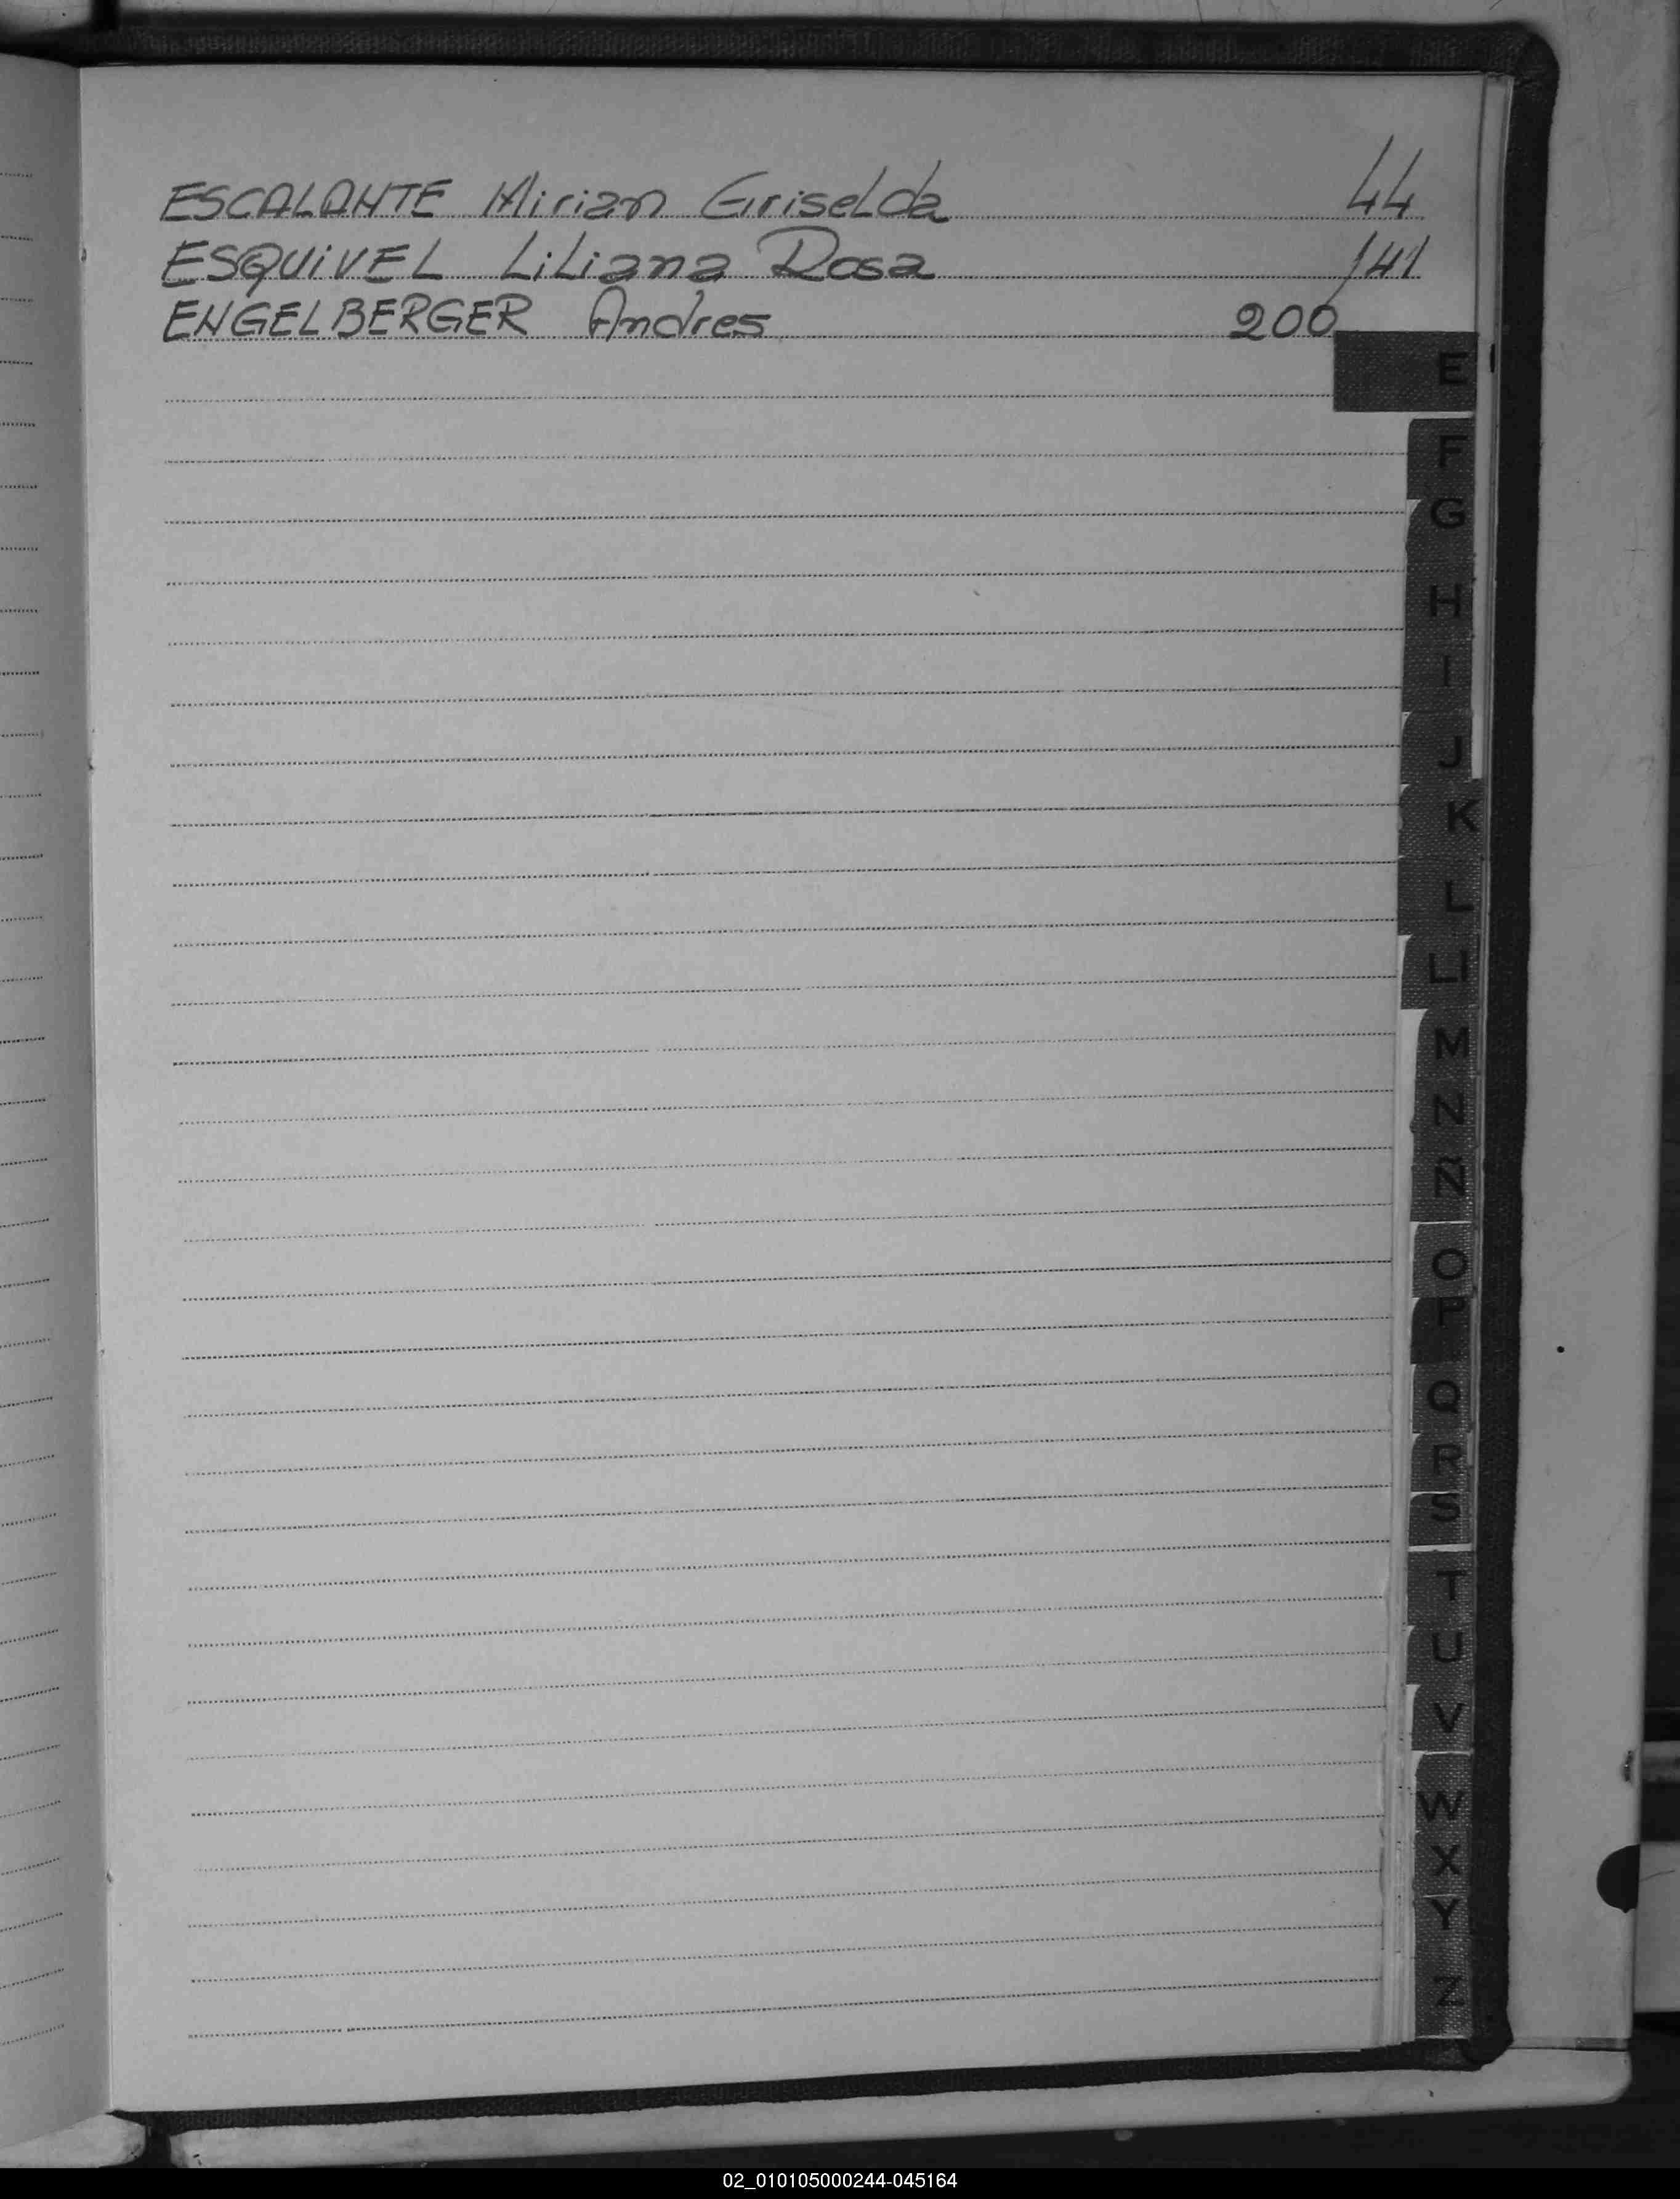 ESCALANTE Mirian Griselda 44
ESQUIVEL Liliana Rosa 141
ENGELBERGER Andres 200
E
F
G
H
I
J
K
L
LL
M
N
Ñ
O
P
Q
R
S
T
U
V
W
X
Y
Z
02_010105000244-045164